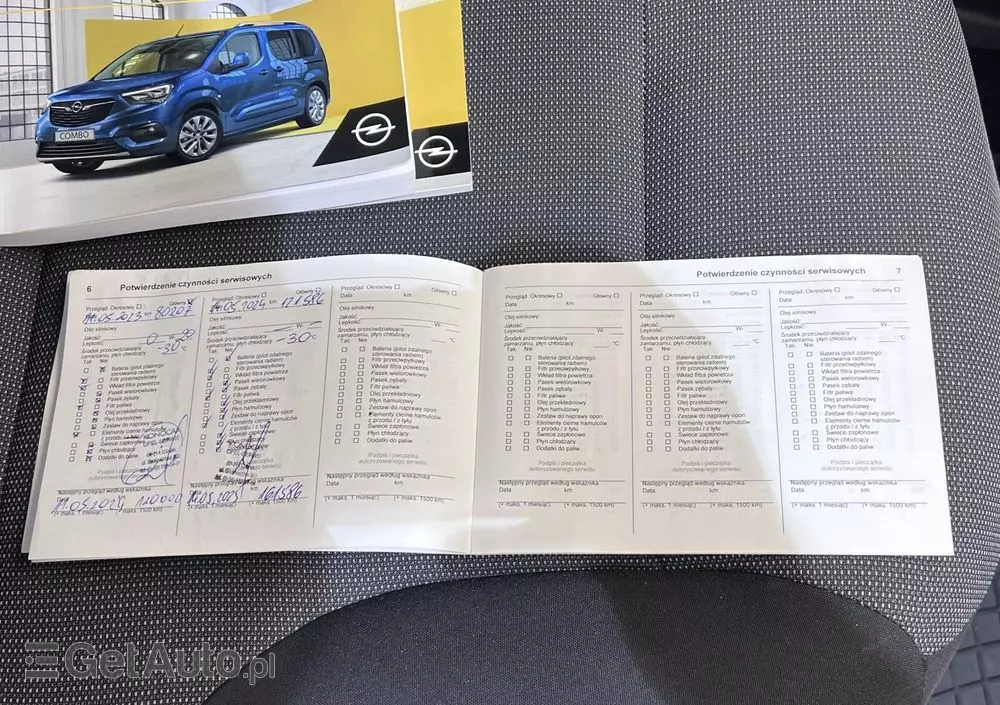 COMBO
6 Potwierdzenie czynności serwisowych
Przegląd: Okresowy Główny
11.05.2023 km 80207
Olej silnikowy
Jakość:
Lepkość: 0 W- 20
Środek przeciwdziałający
zamarzaniu, płyn chłodzący -30 °C
Tak Nie
Bateria (pilot zdalnego
sterowania radiem)
Filtr przeciwpyłkowy
Wkład filtra powietrza
Pasek wielorowkowy
Pasek zębaty
Filtr paliwa
Olej przekładniowy
Płyn hamulcowy
Zestaw do naprawy opon
Elementy cierne hamulców
z przodu / z tyłu
Świece zapłonowe
Płyn chłodzący
Dodatki do paliw
Podpis i pieczątka
Następny przegląd według wskaźnika
11.05.2024 120000
(+ maks. 1 miesiąc) (+ maks. 1500 km)
Przegląd: Okresowy Główny
11.05.2024 km 121586
Olej silnikowy
Jakość:
Lepkość: W-
Środek przeciwdziałający
zamarzaniu, płyn chłodzący -30 °C
Tak Nie
Bateria (pilot zdalnego
sterowania radiem)
Filtr przeciwpyłkowy
Wkład filtra powietrza
Pasek wielorowkowy
Pasek zębaty
Filtr paliwa
Olej przekładniowy
Płyn hamulcowy
Zestaw do naprawy opon
Elementy cierne hamulców
z przodu / z tyłu
Świece zapłonowe
Płyn chłodzący
Następny przegląd według wskaźnika
11.05.2025 161586
(+ maks. 1 miesiąc) (+ maks. 1500 km)
Przegląd: Okresowy Główny
Data km
Olej silnikowy
Jakość:
Lepkość: W-
Środek przeciwdziałający
zamarzaniu, płyn chłodzący °C
Tak Nie
Bateria (pilot zdalnego
sterowania radiem)
Filtr przeciwpyłkowy
Wkład filtra powietrza
Pasek wielorowkowy
Pasek zębaty
Filtr paliwa
Olej przekładniowy
Płyn hamulcowy
Zestaw do naprawy opon
Elementy cierne hamulców
z przodu / z tyłu
Świece zapłonowe
Płyn chłodzący
Dodatki do paliw
Podpis i pieczątka
autoryzowanego serwisu
Następny przegląd według wskaźnika
Data km
(+ maks. 1 miesiąc) (+ maks. 1500 km)
Potwierdzenie czynności serwisowych 7
Przegląd: Okresowy Główny
Data km
Olej silnikowy
Jakość:
Lepkość: W-
Środek przeciwdziałający
zamarzaniu, płyn chłodzący °C
Tak Nie
Bateria (pilot zdalnego
sterowania radiem)
Filtr przeciwpyłkowy
Wkład filtra powietrza
Pasek wielorowkowy
Pasek zębaty
Filtr paliwa
Olej przekładniowy
Płyn hamulcowy
Zestaw do naprawy opon
Elementy cierne hamulców
z przodu / z tyłu
Świece zapłonowe
Płyn chłodzący
Dodatki do paliw
Podpis i pieczątka
autoryzowanego serwisu
Następny przegląd według wskaźnika
Data km
(+ maks. 1 miesiąc) (+ maks. 1500 km)
Przegląd: Okresowy Główny
Data km
Olej silnikowy
Jakość:
Lepkość: W-
Środek przeciwdziałający
zamarzaniu, płyn chłodzący °C
Tak Nie
Bateria (pilot zdalnego
sterowania radiem)
Filtr przeciwpyłkowy
Wkład filtra powietrza
Pasek wielorowkowy
Pasek zębaty
Filtr paliwa
Olej przekładniowy
Płyn hamulcowy
Zestaw do naprawy opon
Elementy cierne hamulców
z przodu / z tyłu
Świece zapłonowe
Płyn chłodzący
Dodatki do paliw
Podpis i pieczątka
autoryzowanego serwisu
Następny przegląd według wskaźnika
Data km
(+ maks. 1 miesiąc) (+ maks. 1500 km)
Przegląd: Okresowy Główny
Data km
Olej silnikowy
Jakość:
Lepkość: W-
Środek przeciwdziałający
zamarzaniu, płyn chłodzący °C
Tak Nie
Bateria (pilot zdalnego
sterowania radiem)
Filtr przeciwpyłkowy
Wkład filtra powietrza
Pasek wielorowkowy
Pasek zębaty
Filtr paliwa
Olej przekładniowy
Płyn hamulcowy
Zestaw do naprawy opon
Elementy cierne hamulców
z przodu / z tyłu
Świece zapłonowe
Płyn chłodzący
Dodatki do paliw
Podpis i pieczątka
autoryzowanego serwisu
Następny przegląd według wskaźnika
Data km
(+ maks. 1 miesiąc) (+ maks. 1500 km)
GetAuto.pl